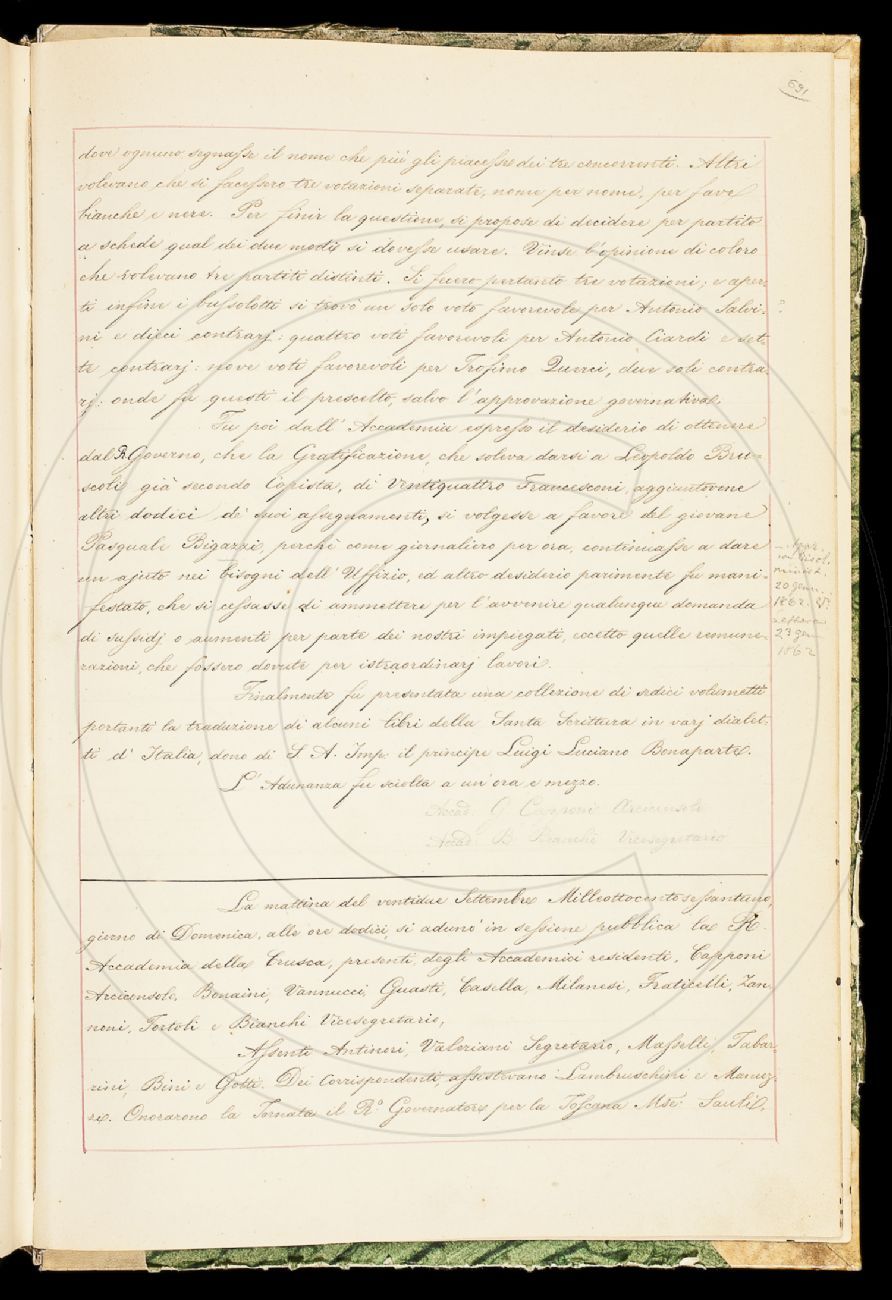 691
dove ognuno segnasse il nome che più gli piacesse dei tre concorrenti. Altri
volevano che si facessero tre votazioni separate, nome per nome, per fave
bianche e nere. Per finir la questione, si propose di decidere per partito
a schede qual dei due modi si dovesse usare. Vinse l'opinione di coloro
che volevano tre partiti distinti. Si fecero pertanto tre votazioni; e aper-
ti infine i bussolotti si trovò un solo voto favorevole per Antonio Salvi-
ni e dieci contrarj: quattro voti favorevoli per Antonio Ciardi e set-
te contrarj: nove voti favorevoli per Trofimo Querci, due soli contra-
rj: onde fu questi il prescelto, salvo l'approvazione governativa.
Fu poi dall'Accademia espresso il desiderio di ottenere
dal R. Governo, che la Gratificazione, che soleva darsi a Leopoldo Bru-
scoli già secondo Copista, di Ventiquattro Francesconi, aggiuntovene
altri dodici de' suoi assegnamenti, si volgesse a favore del giovane
Pasquale Bigazzi, perchè come giornaliero per ora, continuasse a dare
un ajuto nei bisogni dell'Uffizio, ed altro desiderio parimente fu mani-
festato, che si cessasse di ammettere per l'avvenire qualunque domanda
di sussidj o aumenti per parte dei nostri impiegati, eccetto quelle remune-
razioni, che fossero dovute per istraordinarj lavori.
20 genn.
1862
23 gen
1862
Finalmente fu presentata una collezione di sedici volumetti
portanti la traduzione di alcuni libri della Santa Scrittura in varj dialet-
ti d'Italia, dono di S. A. Imp. il principe Luigi Luciano Bonaparte.
L'Adunanza fu sciolta a un'ora e mezzo.
Accad. G. Capponi Arciconsolo
Accad. B. Bianchi Vicesegretario
La mattina del ventidue Settembre Milleottocentosessantuno,
giorno di Domenica, alle ore dodici, si adunò in sessione pubblica la R.
Accademia della Crusca, presenti, degli Accademici residenti, Capponi
Arciconsolo, Bonaini, Vannucci, Guasti, Casella, Milanesi, Fraticelli, Zan-
noni, Tortoli e Bianchi Vicesegretario,
Assenti Antinori, Valeriani Segretario, Masselli, Tabar-
rini, Bini e Gotti. Dei Corrispondenti assistevano Lambruschini e Manuz-
zi. Onorarono la Tornata il R.º Governatore per la Toscana Mse: Sauli,